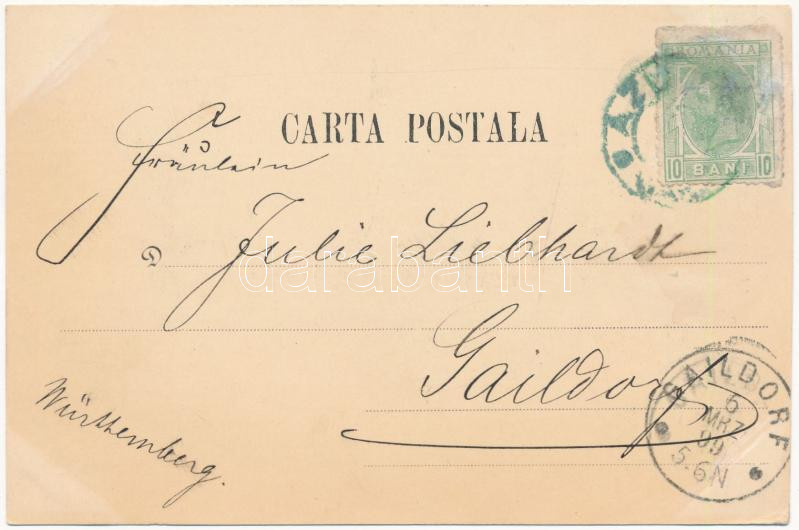 ROMANIA
10 BANI 10
CARTA POSTALA
Fräulein
Julie Liebhardt
darabanth
Gaildorf
Württemberg.
GAILDORF
6
MRZ
99
5-6N